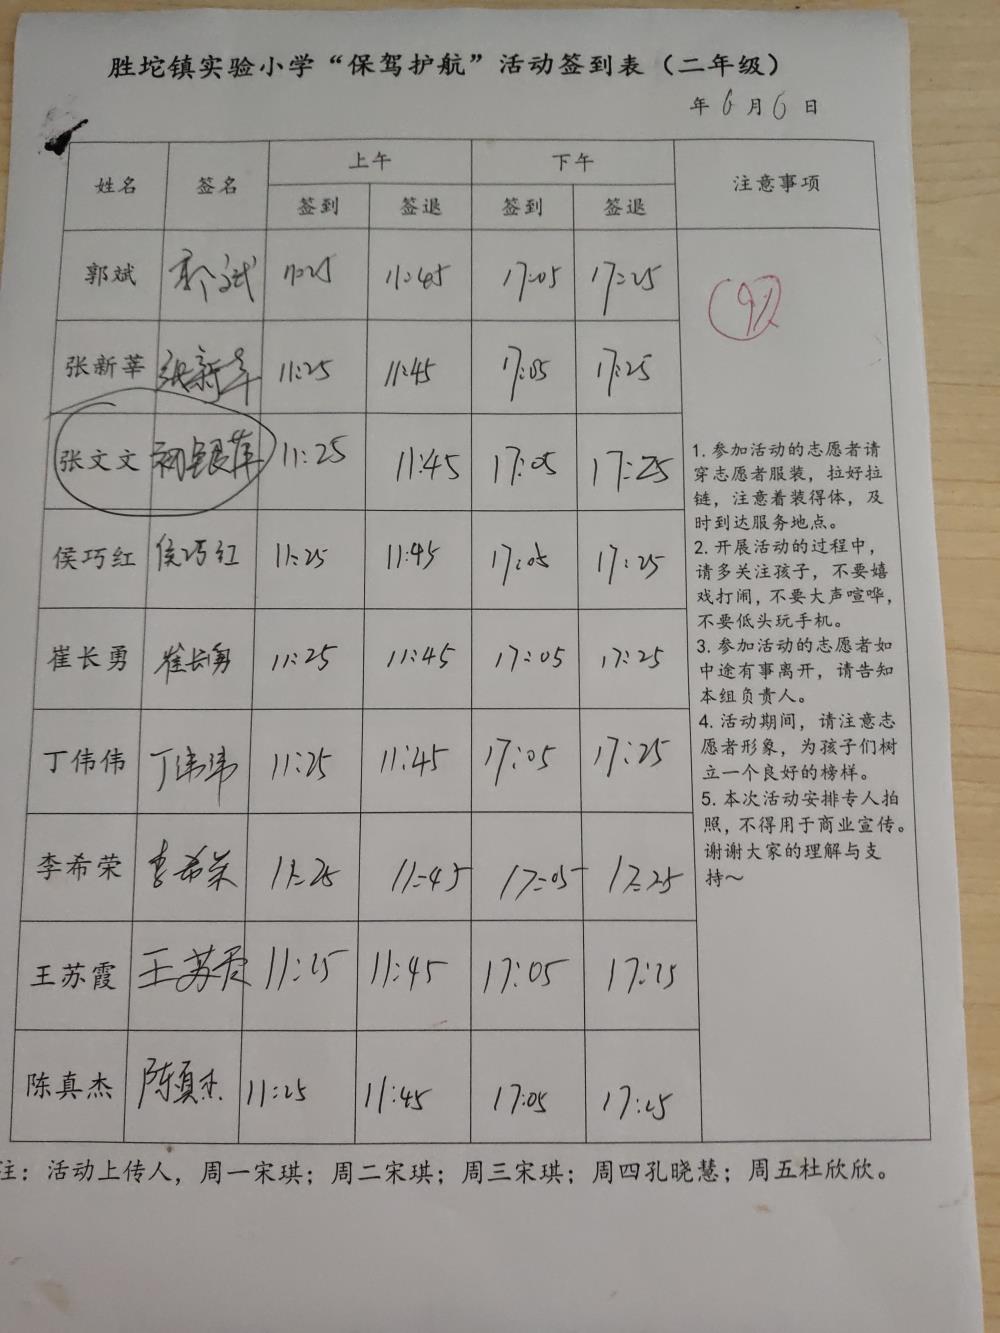 胜坨镇实验小学“保驾护航”活动签到表（二年级）
年 6 月 6 日
姓名 签名 上午 下午 注意事项
签到 签退 签到 签退
郭斌 郭斌 11:25 11:45 17:05 17:25
张新莘 张新莘 11:25 11:45 17:05 17:25
张文文 11:25 11:45 17:05 17:25
侯巧红 侯巧红 11:25 11:45 17:05 17:25
崔长勇 崔长勇 11:25 11:45 17:05 17:25
丁伟伟 丁伟伟 11:25 11:45 17:05 17:25
李希荣 李希荣 11:25 11:45 17:05 17:25
王苏霞 王苏霞 11:25 11:45 17:05 17:25
陈真杰 陈真杰 11:25 11:45 17:05 17:25
9人
1. 参加活动的志愿者请
穿志愿者服装，拉好拉
链，注意着装得体，及
时到达服务地点。
2. 开展活动的过程中，
请多关注孩子，不要嬉
戏打闹，不要大声喧哗，
不要低头玩手机。
3. 参加活动的志愿者如
中途有事离开，请告知
本组负责人。
4. 活动期间，请注意志
愿者形象，为孩子们树
立一个良好的榜样。
5. 本次活动安排专人拍
照，不得用于商业宣传。
谢谢大家的理解与支
持～
注：活动上传人，周一宋琪；周二宋琪；周三宋琪；周四孔晓慧；周五杜欣欣。